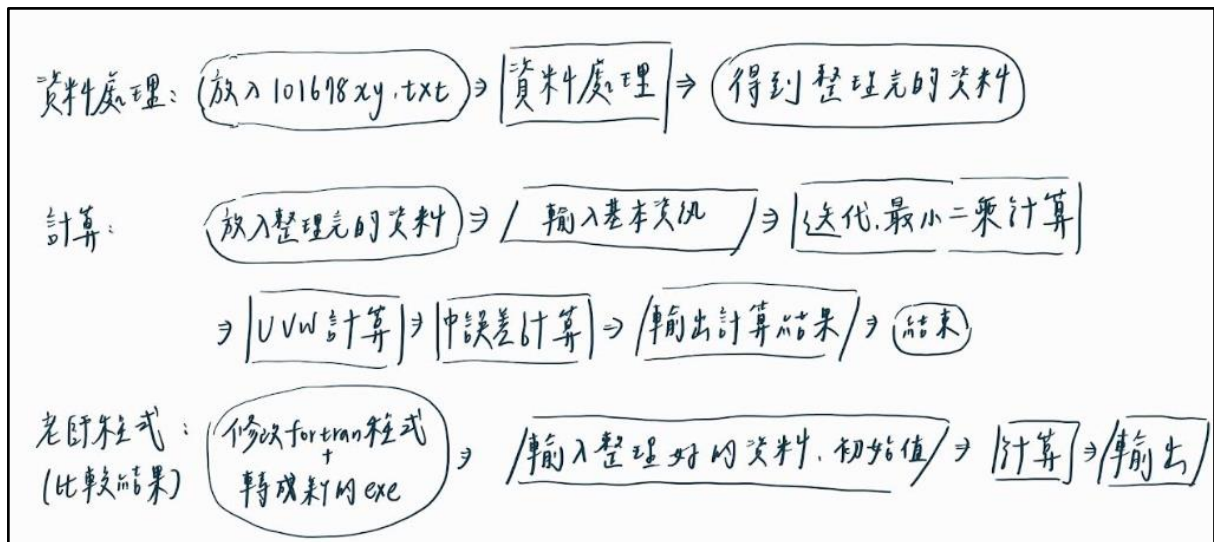 資料處理：放入101678xy.txt ⇒ 資料處理 ⇒ 得到整理完的資料
計算： 放入整理完的資料 ⇒ 輸入基本資訊 ⇒ 迭代.最小二乘計算
⇒ UVW計算 ⇒ 中誤差計算 ⇒ 輸出計算結果 ⇒ 結束
老師程式： 修改fortran程式 ⇒ 輸入整理好的資料、初始值 ⇒ 計算 ⇒ 輸出
+
(比較結果) 轉成新的exe